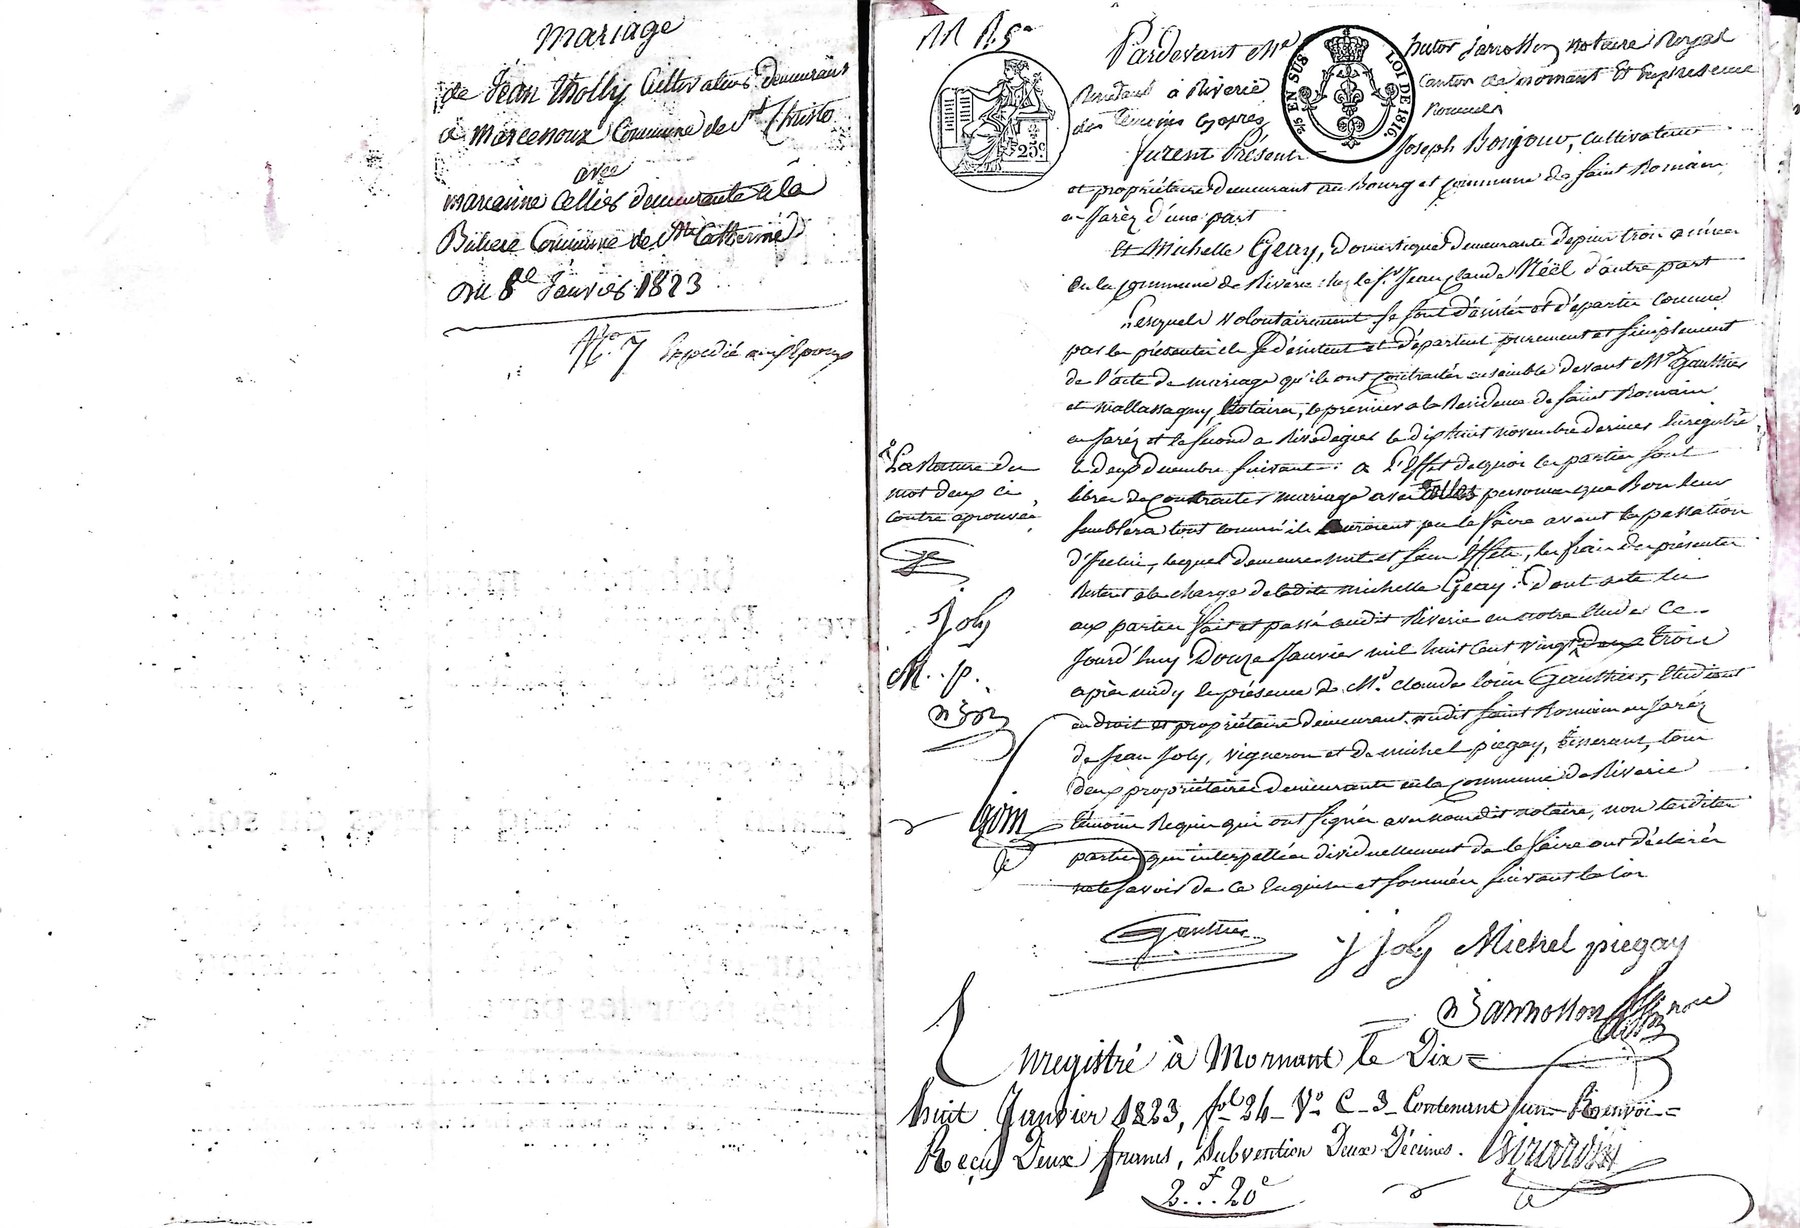 Mariage
de Jean Tholly Cultivateur demeurant
a Marcenoux Commune de St Christo
avec
marianne Cellier demeurante à la
Commune de Ste Catherine
Du 8e Janvier 1823
No. 7 Expedié aux Epoux
25 c
25 EN SUS
LOI DE 1816.
Pardevant Me hutor Jarrosson notaire Royal
Résident à Riverie Canton de mornant Et En présence
des témoins cy après nommés
furent Présents Joseph Bonjour, cultivateur
et propriétaire demeurant au Bourg et commune de Saint Romain
en Jaréz d'une part
Et Michelle Geay, domestique demeurante depuis trois années
en la commune de Riverie chez le Sr. Jean Claude Néël d'autre part
Lesquels volontairement se sont désistés et départis comme
par les présentes ils se désistent et départent purement et simplement
de l'acte de mariage qu'ils ont contractés ensemble devant Mes Gauthier
et mallassagny, Notaires, le premier a la Résidence de Saint Romain
en Jaréz et le second a Rivedegier le dix huit novembre dernier Enregistré
le deux decembre suivant : a l'Effet de quoi les parties sont
libres de contracter mariage avec telles personnes que Bon leur
semblera tout comme ils auroient pu le faire avant la passation
d'Icelui, lequel demeure nul et sans Effets, les frais des présentes
Restent a la charge de ladite michelle Geay. Dont acte lu
aux parties fait et passé audit Riverie en notre Etude ce
Jourd'huy Douze Janvier mil huit cent vingt deux trois
après midy En présence de Mr. claude louis Gauthier, Etudiant
en droit et propriétaire demeurant audit Saint Romain en Jaréz
de Jean Joly, vigneron et de michel piegay, tisserant, tous
deux propriétaires demeurants en la commune de Riverie
témoins Requis qui ont signés avec nous dit notaire, non lesdites
parties qui interpellées dividuellement de le faire ont déclarés
ne le savoir de ce Enquises et sommées suivant la loi
La Rature du
mot deux ci
contre aprouvée
J Joly
M. p.
Gauthier
J Joly Michel piegay
Jarrosson
Enregistré à Mornant le Dix=
huit Janvier 1823, fol 24 Vo C 3 Contenant un Renvoi=
Reçu Deux francs, Subvention Deux Décimes. Girardin
2f..20c